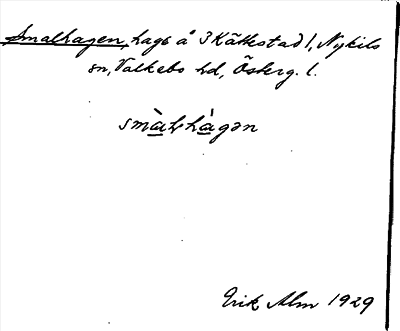 Smalhagen, hage å 3 Kättestad 1, Nykils
sn, Valkebo hd, Österg. l.
smàlhágən
Erik Alm 1929